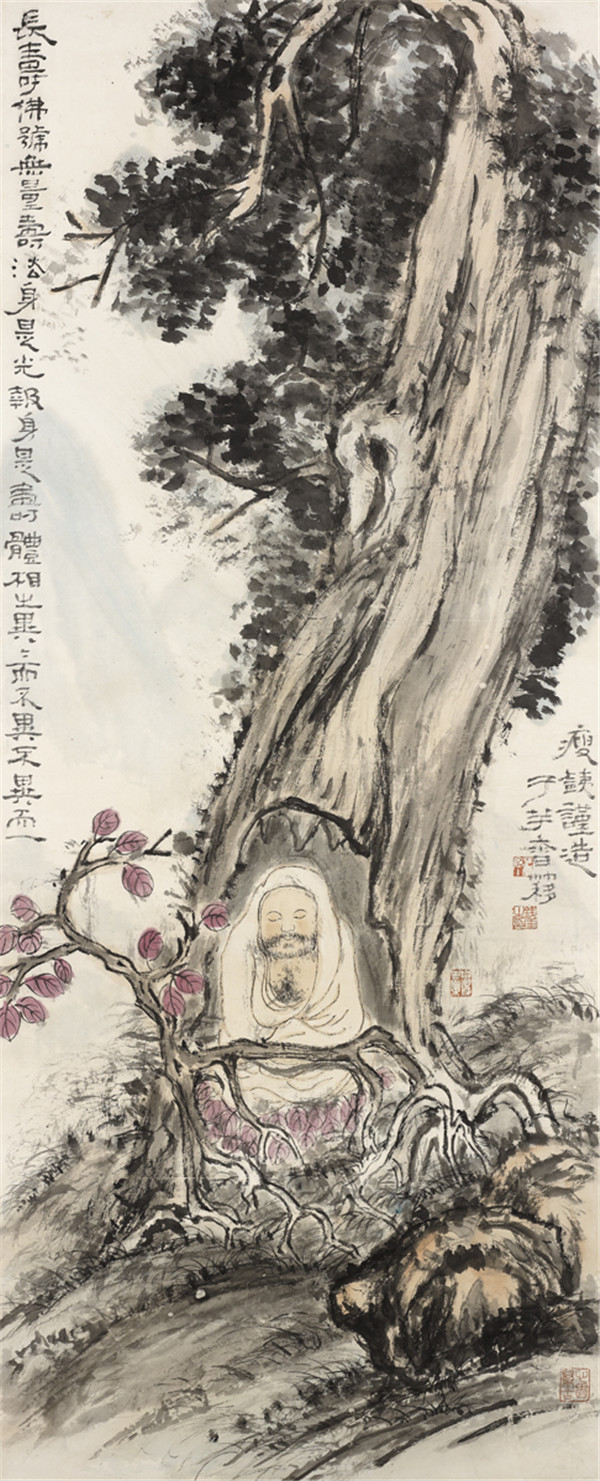 長壽佛號無量壽法身是光報身是壽體相之異〻而不異不異而一
瘦銕謹造
于芋香簃